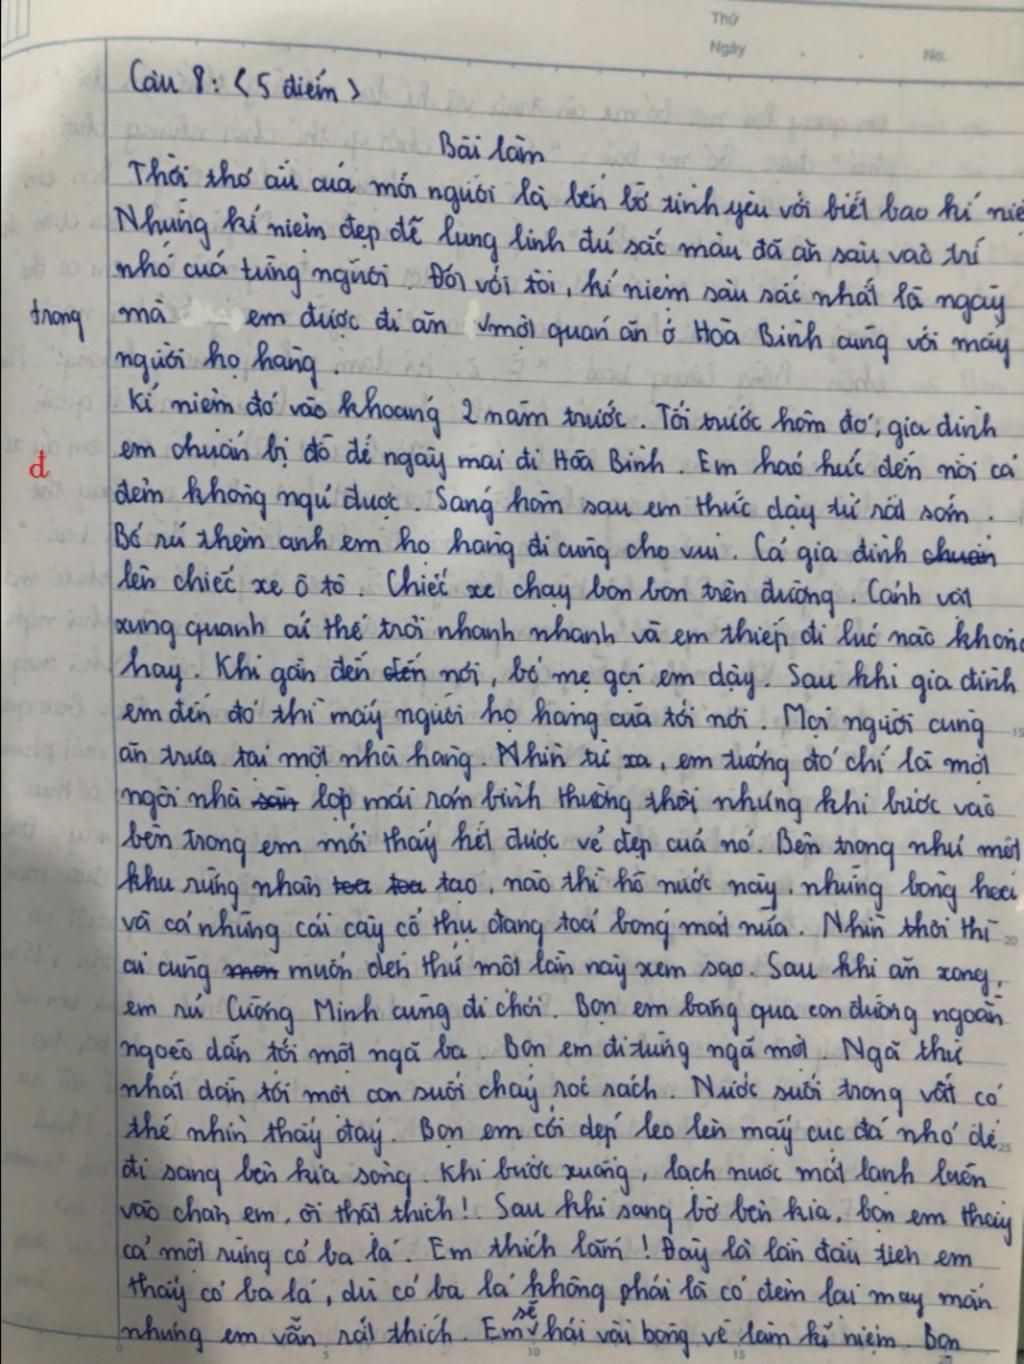 Thứ
Ngày
No.
Câu 8: (5 điểm)
Bài làm
Thời thơ ấu của mỗi người là bến bờ tình yêu với biết bao kỉ niệ
Những kỉ niệm đẹp đẽ lung linh đủ sắc màu đã ăn sâu vào trí
nhớ của từng người. Đối với tôi, kỉ niệm sâu sắc nhất là ngày
mà em được đi ăn trong một quán ăn ở Hòa Bình cùng với mấy
người họ hàng.
Kỉ niệm đó vào khoảng 2 năm trước. Tối trước hôm đó, gia đình
em chuẩn bị đồ để ngày mai đi Hòa Bình. Em háo hức đến nỗi cả
đ
đêm không ngủ được. Sáng hôm sau em thức dậy từ rất sớm.
Bố rủ thêm anh em họ hàng đi cùng cho vui. Cả gia đình chuẩn
lên chiếc xe ô tô. Chiếc xe chạy bon bon trên đường. Cảnh vật
xung quanh cứ thế trôi nhanh nhanh và em thiếp đi lúc nào khôn
hay. Khi gần đến đến nơi, bố mẹ gọi em dậy. Sau khi gia đình
em đến đó thì mấy người họ hàng của tới nơi. Mọi người cùng
ăn trưa tại một nhà hàng. Nhìn từ xa, em tưởng đó chỉ là một
ngôi nhà sàn lợp mái rơm bình thường thôi nhưng khi bước vào
bên trong em mới thấy hết được vẻ đẹp của nó. Bên trong như một
khu rừng nhân toa toa tạo, nào thì hồ nước này, những bông hoa
và cả những cái cây cổ thụ đang toả bóng mát nữa. Nhìn thôi thì
ai cũng mon muốn đến thử một lần này xem sao. Sau khi ăn xong,
em rủ Cường Minh cùng đi chơi. Bọn em băng qua con đường ngoằn
ngoèo dẫn tới một ngã ba. Bọn em đi từng ngã một. Ngã thứ
nhất dẫn tới một con suối chảy róc rách. Nước suối trong vắt có
thể nhìn thấy đáy. Bọn em cởi dép leo lên mấy cục đá nhỏ để
đi sang bên kia sông. Khi bước xuống, lạch nước mát lạnh luồn
vào chân em, ôi thật thích! Sau khi sang bờ bên kia, bọn em thấy
cả một rừng cỏ ba lá. Em thích lắm! Đây là lần đầu tiên em
thấy cỏ ba lá, dù cỏ ba lá không phải là cỏ đem lại may mắn
nhưng em vẫn rất thích. Em sẽ hái vài bông về làm kỉ niệm. Bọn